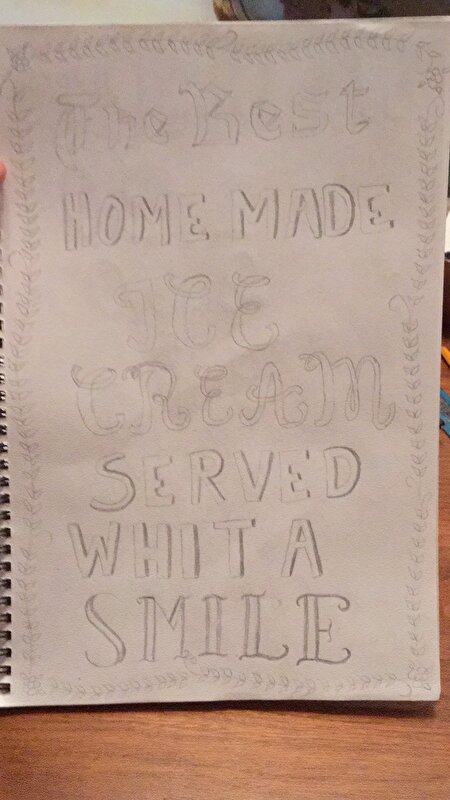 The Best
HOME MADE
ICE
CREAM
SERVED
WHIT A
SMILE